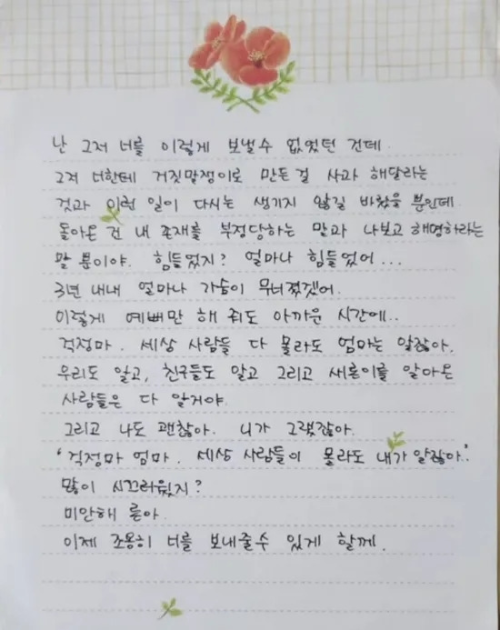 난 그저 너를 이렇게 보낼수 없었던 건데.
그저 너한테 거짓말쟁이로 만든걸 사과 해달라는
것과 이런 일이 다시는 생기지 않길 바랬을 뿐인데.
돌아온 건 내 존재를 부정당하는 말과 나보고 해명하라는
말 뿐이야. 힘들었지? 얼마나 힘들었어...
3년 내내 얼마나 가슴이 무너졌겠어.
이렇게 예뻐만 해 줘도 아까운 시간에..
걱정마. 세상 사람들 다 몰라도 엄마는 알잖아.
우리도 알고, 친구들도 알고 그리고 새론이를 알아온
사람들은 다 알거야.
그리고 나도 괜찮아. 니가 그랬잖아.
"걱정마 엄마. 세상 사람들이 몰라도 내가 알잖아."
많이 시끄러웠지?
미안해 론아
이제 조용히 너를 보내줄수 있게 할께.